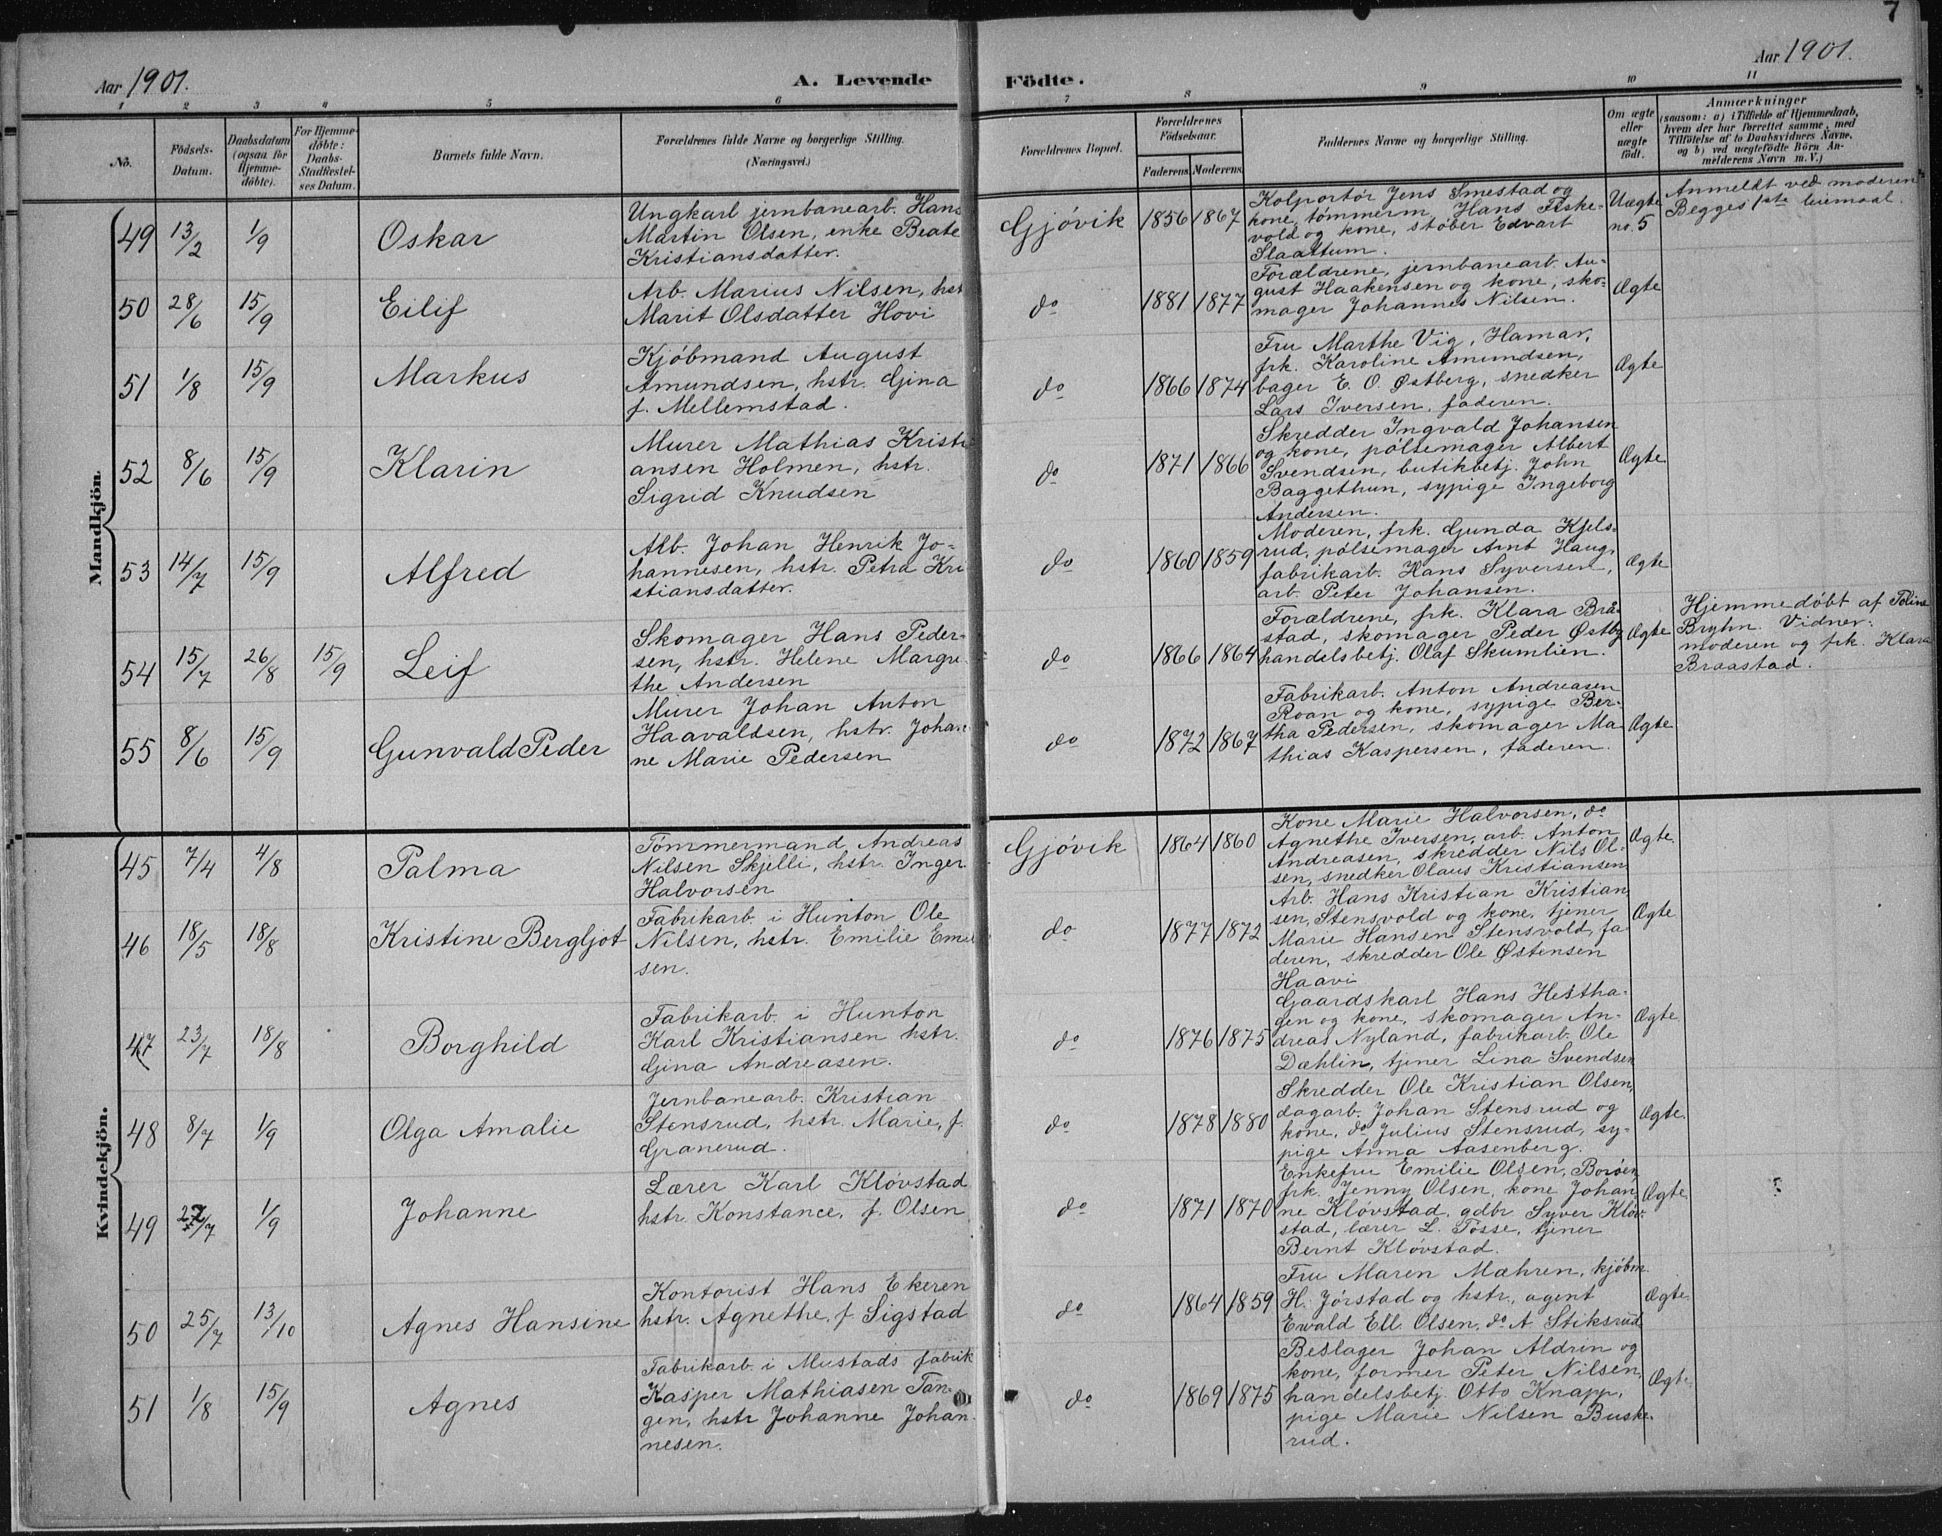 7
Aar 1901.
A. Levende Födte.
Aar 1901.
1 2 3 4 5 6 7 8 9 10 11
No.
Födsels-
Datum.
Daabsdatum
(ogsaa for
Hjemme-
döbte).
For Hjemme-
döbte:
Daabs-
Stadfæstel-
ses Datum.
Barnets fulde Navn.
Forældrenes fulde Navne og borgerlige Stilling.
(Næringsvei.)
Forældrenes Bopæl.
Forældrenes
Födselsaar.
Faderens Moderens
Faddernes Navne og borgerlige Stilling.
Om ægte
eller
uægte
født.
Anmærkninger
(saasom: a) i Tilfælde af Hjemmedaab,
hvem der har forrettet samme, med
Tilföielse af to Daabsvidners Navne,
og b) ved uægtefödte Börn An-
melderens Navn m. V.)
Mandkjön.
49 13/2 1/9 Oskar
Ungkarl jernbanearb. Hans
Martin Olsen, enke Beate
Kristiansdatter.
Gjövik 1856 1867
Kolportör Jens Smestad og
kone, tömmerm. Hans Fiske-
vold og kone, stöber Edvart
Slaattum.
Uægte
no. 5
Anmeldt ved moderen
Begges 1ste leiemaal.
50 28/6 15/9 Eilif
Arb. Marius Nilsen, hstr
Marit Olsdatter Hovi
do 1881 1877
Forældrene, jernbanearb. Au-
gust Haakensen og kone, sko-
mager Johannes Nilsen.
Ægte
51 1/8 15/9 Markus
Kjöbmand August
Amundsen, hstr. Gina
f. Mellemstad.
do 1866 1874
Fru Marthe Vig, Hamar,
frk. Karoline Amundsen,
bager E. O. Østberg, snedker
Lars Iversen, faderen.
Ægte
52 8/6 15/9 Klarin
Murer Mathias Kristi-
ansen Holmen, hstr.
Sigrid Knudsen
do 1871 1866
Skredder Ingvald Johansen
og kone, pölsemager Albert
Svendsen, butikbetj. John
Baggethun, sypige Ingeborg
Andersen.
Ægte
53 14/7 15/9 Alfred
Arb. Johan Henrik Jo-
hannesen, hstr. Petra Kri
stiansdatter.
do 1860 1859
Moderen, frk. Gunda Kjels-
rud, pölsemager Arnt Haug,
fabrikarb. Hans Syversen,
arb. Peter Johansen.
Ægte
54 15/7 26/8 15/9 Leif
Skomager Hans Peder-
sen, hstr. Helene Margre-
the Andersen
do 1866 1864
Forældrene, frk. Klara Brå-
stad, skomager Peder Østby
handelsbetj. Olaf Skumlien.
Ægte
Hjemmedöbt af Toline
Bryhn. Vidner:
moderen og frk. Klara
Braastad.
55 8/6 15/9 Gunvald Peder
Murer Johan Anton
Haavaldsen, hstr. Johan
ne Marie Pedersen
do 1872 1867
Fabrikarb. Anton Andreasen
Roan og kone, sypige Ber-
tha Pedersen, skomager Ma-
thias Kaspersen, faderen.
Ægte
Kvindekjön.
45 7/4 4/8 Palma
Tömmermand Andreas
Nilsen Skjelli, hstr. Inger
Halvorsen
Gjövik 1864 1860
Kone Marie Halvorsen, do
Agnethe Iversen, arb. Anton
Andreasen, skredder Nils Ol-
sen, snedker Olaus Kristiansen
Ægte
46 18/5 18/8 Kristine Bergljot
Fabrikarb. i Hunton Ole
Nilsen, hstr. Emilie Emil
sen.
do 1877 1872
Arb. Hans Kristian Kristian
sen, Stensvold og kone, tjener
Marie Hansen Stensvold, fa
deren, skredder Ole Østensen
Haavi
Ægte
47 23/7 18/8 Borghild
Fabrikarb. i Hunton
Karl Kristiansen hstr.
Gina Andreasen.
do 1876 1875
Gaardskarl Hans Hestha-
gen og kone, skomager An-
dreas Nyland, fabrikarb. Ole
Dæhlin, tjener Lina Svendsen
Ægte
48 8/7 1/9 Olga Amalie
Jernbanearb. Kristian
Stensrud, hstr. Marie, f.
Granerud.
do 1878 1880
Skredder Ole Kristian Olsen,
dagarb. Johan Stensrud og
kone, do Julius Stensrud, sy-
pige Anna Aasenberg.
Ægte.
49 27/7 1/9 Johanne
Lærer Karl Klövstad
hstr. Konstance, f. Olsen
do 1871 1870
Enkefru Emilie Olsen, Boröen
frk. Jenny Olsen, kone Johan
ne Klövstad, gdbr Syver Klöv-
stad, lærer L. Tosse, tjener
Bernt Klövstad.
Ægte
50 25/7 13/10 Agnes Hansine
Kontorist Hans Ekeren
hstr. Agnethe, f Sigstad
do 1864 1859
Fru Maren Mæhren, kjöbm.
H. Jörstad og hstr., agent
Ewald Ell. Olsen, do A Stiksrud
Ægte
51 1/8 15/9 Agnes
Fabrikarb. i Mustads fabrik
Kasper Mathiasen Tan-
gen, hstr Johanne Johan-
nesen.
do 1869 1875
Beslager Johan Aldrin og
kone, former Peter Nilsen,
handelsbetj. Otto Knapp,
pige Marie Nilsen Buske-
rud.
Ægte